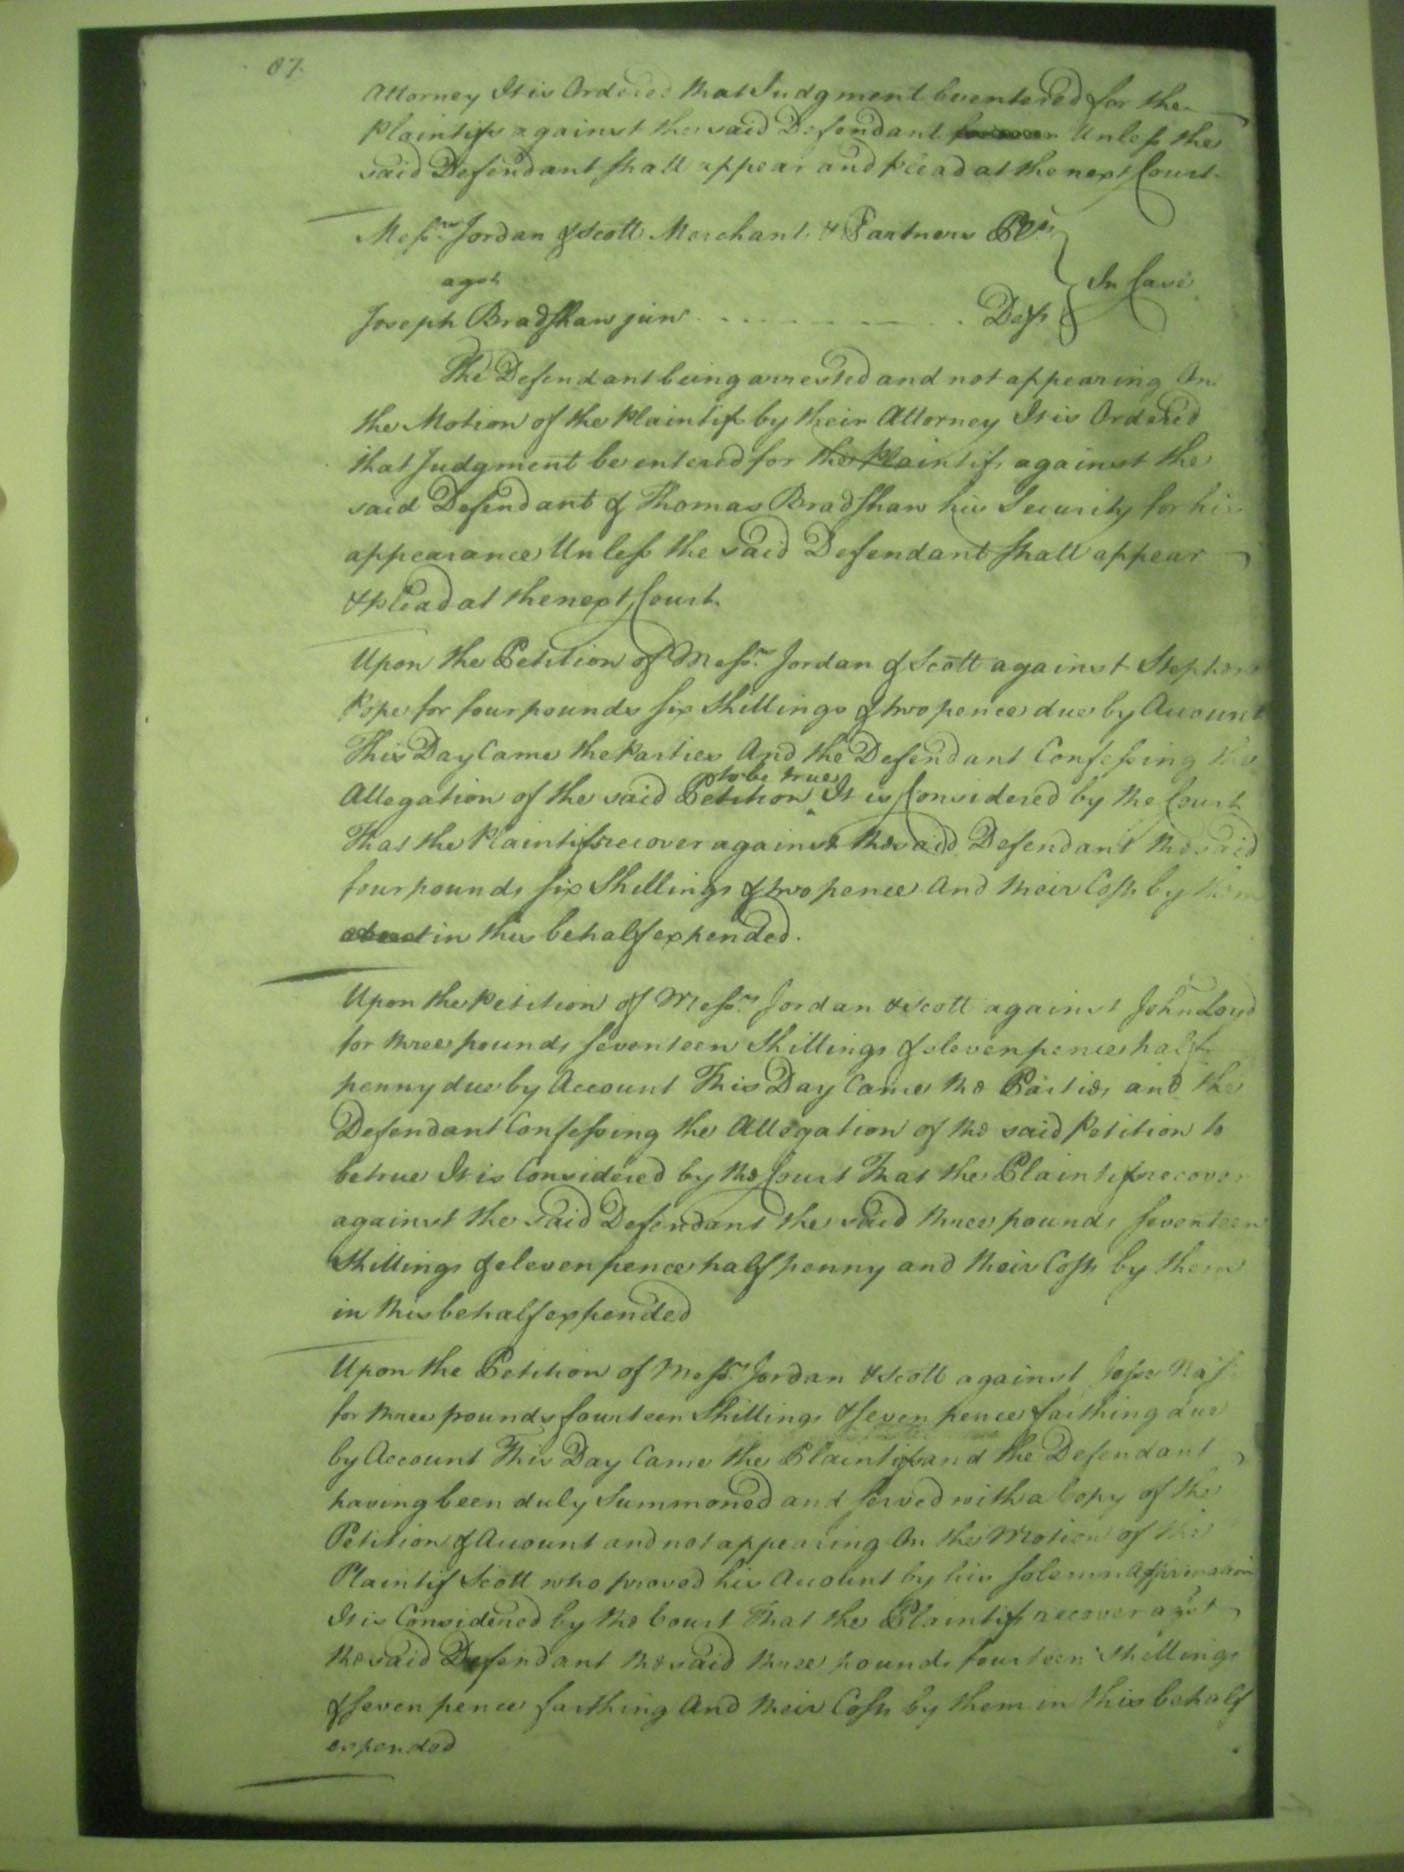 87
Attorney It is Ordered that Judgment be entered for the
Plaintifs against the said Defendant Unless the
said Defendant shall appear and plead at the next Court
Messrs Jordan & Scott Merchants & Partners Pltfs
agst In Case
Joseph Bradshaw junr Deft
The Defendant being arrested and not appearing On
the Motion of the Plaintifs by their Attorney It is Ordered
that Judgment be entered for the Plaintifs against the
said Defendant & Thomas Bradshaw his Security for his
appearance Unless the said Defendant shall appear
& plead at the next Court
Upon the Petition of Messrs Jordan & Scott against Stephen
Pope for four pounds six shillings & two pence due by Account
This Day Came the Parties And the Defendant Confessing the
Allegation of the said Petition to be true It is Considered by the Court
That the Plaintifs recover against the said Defendant the said
four pounds six Shillings & two pence And their Costs by them
in this behalf expended.
Upon the Petition of Messrs Jordan & Scott against John Loyd
for three pounds seventeen Shillings & eleven pence half
penny due by Account This Day Came the Parties and the
Defendant Confessing the Allegation of the said Petition to
be true It is Considered by the Court That the Plaintifs recover
against the said Defendant the said three pounds seventeen
Shillings & eleven pence half penny and their Costs by them
in this behalf expended
Upon the Petition of Messrs Jordan & Scott against
for three pounds fourteen Shillings & seven pence farthing due
by Account This Day Came the Plaintifs and the Defendant
having been duly Summoned and served with a Copy of the
Petition & Account and not appearing On the Motion of the
Plaintif Scott who proved his Account by his solemn Affirmation
It is Considered by the Court That the Plaintifs recover agst
the said Defendant the said three pounds fourteen Shillings
& seven pence farthing And their Costs by them in this behalf
expended